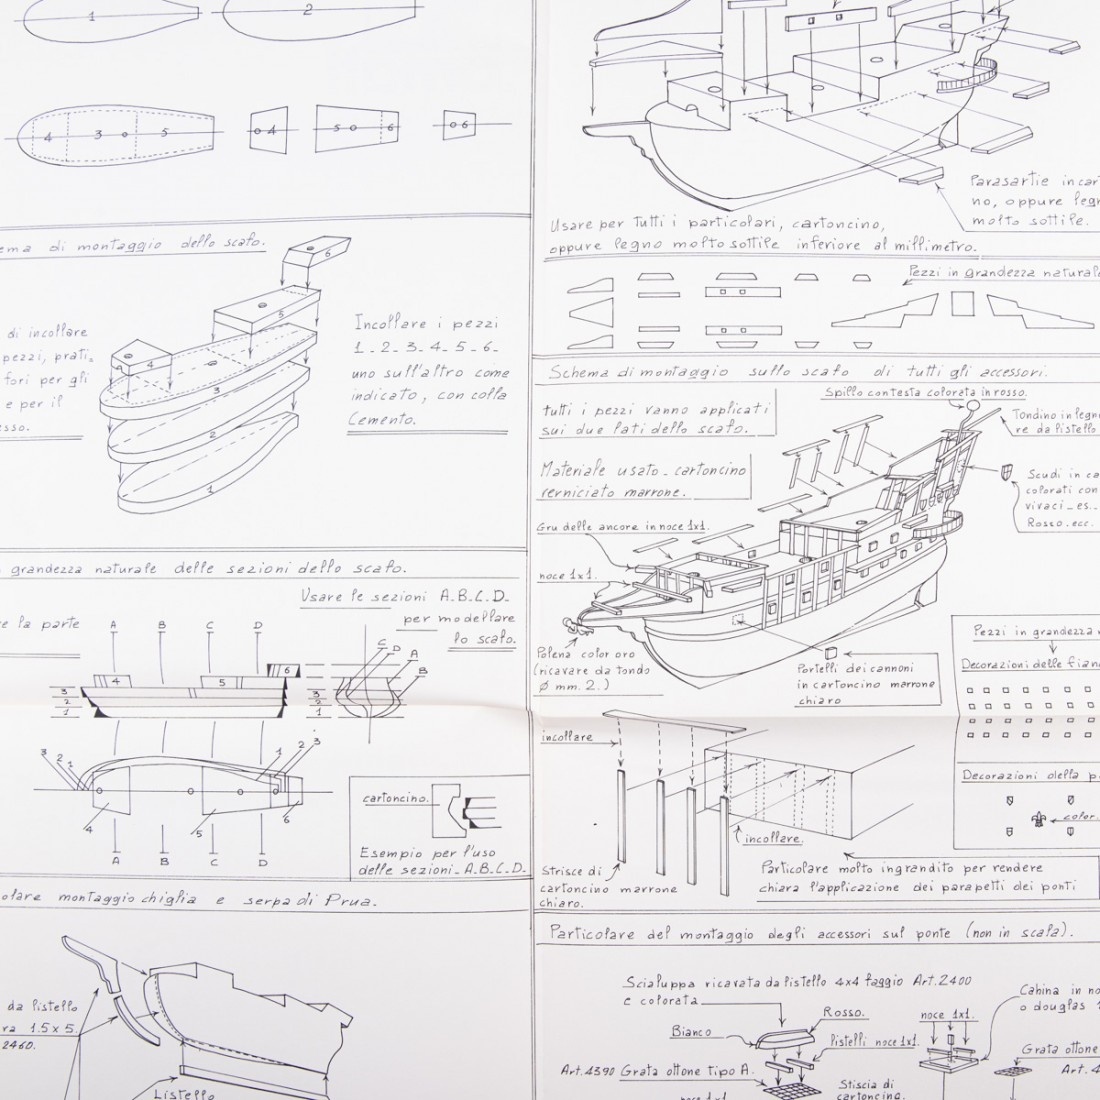 1
2
4
3
5
4
5
6
6
di montaggio dello scafo.
di incollare
pezzi, prati-
fori per gli
e per il
Incollare i pezzi
1_2_3_4_5_6_
uno sull'altro come
indicato, con colla
Cemento.
6
5
4
3
2
1
grandezza naturale delle sezioni dello scafo.
Usare le sezioni A.B.C.D.
per modellare
lo scafo.
la parte
A B C D
C
D
A
B
4
5
6
3
2
1
3
2
1
3
2
1
1
2
3
4
5
6
A B C D
cartoncino.
Esempio per l'uso
delle sezioni_A.B.C.D.
montaggio chiglia e serpa di Prua.
da listello
1.5x5.
2460.
Listello
Parasartie in
no, oppure
molto sottile.
Usare per tutti i particolari, cartoncino,
oppure legno molto sottile inferiore al millimetro.
Pezzi in grandezza naturale
Schema di montaggio sullo scafo di tutti gli accessori.
Spillo con testa colorata in rosso.
tutti i pezzi vanno applicati
sui due lati dello scafo.
Tondino in legno
re da listello
Materiale usato_cartoncino
verniciato marrone.
Scudi in
colorati con
vivaci_es._
Rosso.ecc.
Gru delle ancore in noce 1x1.
noce 1x1.
Polena color oro
(ricavare da tondo
Ø mm. 2.)
Portelli dei cannoni
in cartoncino marrone
chiaro
Pezzi in grandezza
Decorazioni delle
Decorazioni della
color.
incollare
incollare.
Strisce di
cartoncino marrone
chiaro.
Particolare molto ingrandito per rendere
chiara l'applicazione dei parapetti dei ponti
Particolare del montaggio degli accessori sul ponte (non in scala).
Scialuppa ricavata da listello 4x4 faggio Art.2400
e colorata
Bianco
Rosso.
listelli noce 1x1.
Art.4390 Grata ottone tipo A.
noce 1x1
Stiscia di
cartoncino.
noce 1x1.
Cabina in
o douglas
Grata ottone
Art.